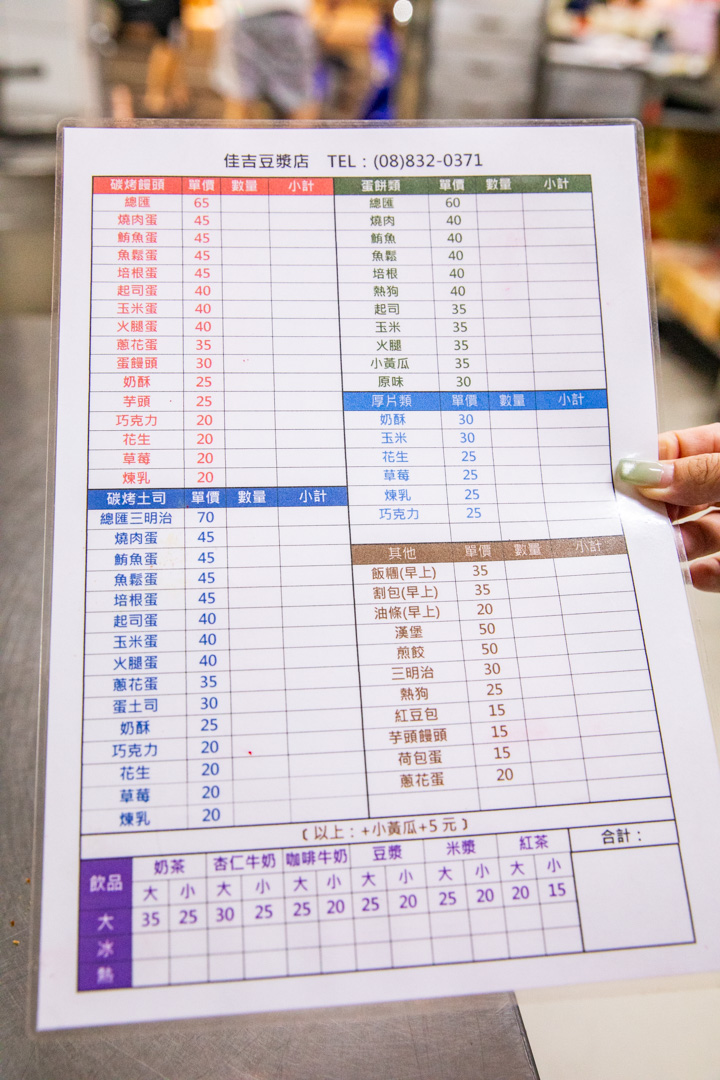 佳吉豆漿店 TEL：(08)832-0371
碳烤饅頭 單價 數量 小計
總匯 65
燒肉蛋 45
鮪魚蛋 45
魚鬆蛋 45
培根蛋 45
起司蛋 40
玉米蛋 40
火腿蛋 40
蔥花蛋 35
蛋饅頭 30
奶酥 25
芋頭 25
巧克力 20
花生 20
草莓 20
煉乳 20
碳烤土司 單價 數量 小計
總匯三明治 70
燒肉蛋 45
鮪魚蛋 45
魚鬆蛋 45
培根蛋 45
起司蛋 40
玉米蛋 40
火腿蛋 40
蔥花蛋 35
蛋土司 30
奶酥 25
巧克力 20
花生 20
草莓 20
煉乳 20
蛋餅類 單價 數量 小計
總匯 60
燒肉 40
鮪魚 40
魚鬆 40
培根 40
熱狗 40
起司 35
玉米 35
火腿 35
小黃瓜 35
原味 30
厚片類 單價 數量 小計
奶酥 30
玉米 30
花生 25
草莓 25
煉乳 25
巧克力 25
其他 單價 數量 小計
飯糰(早上) 35
割包(早上) 35
油條(早上) 20
漢堡 50
煎餃 50
三明治 30
熱狗 25
紅豆包 15
芋頭饅頭 15
荷包蛋 15
蔥花蛋 20
(以上：+小黃瓜+5元)
飲品 奶茶 杏仁牛奶 咖啡牛奶 豆漿 米漿 紅茶 合計：
大 小 大 小 大 小 大 小 大 小 大 小
大 35 25 30 25 25 20 25 20 25 20 20 15
冰
熱